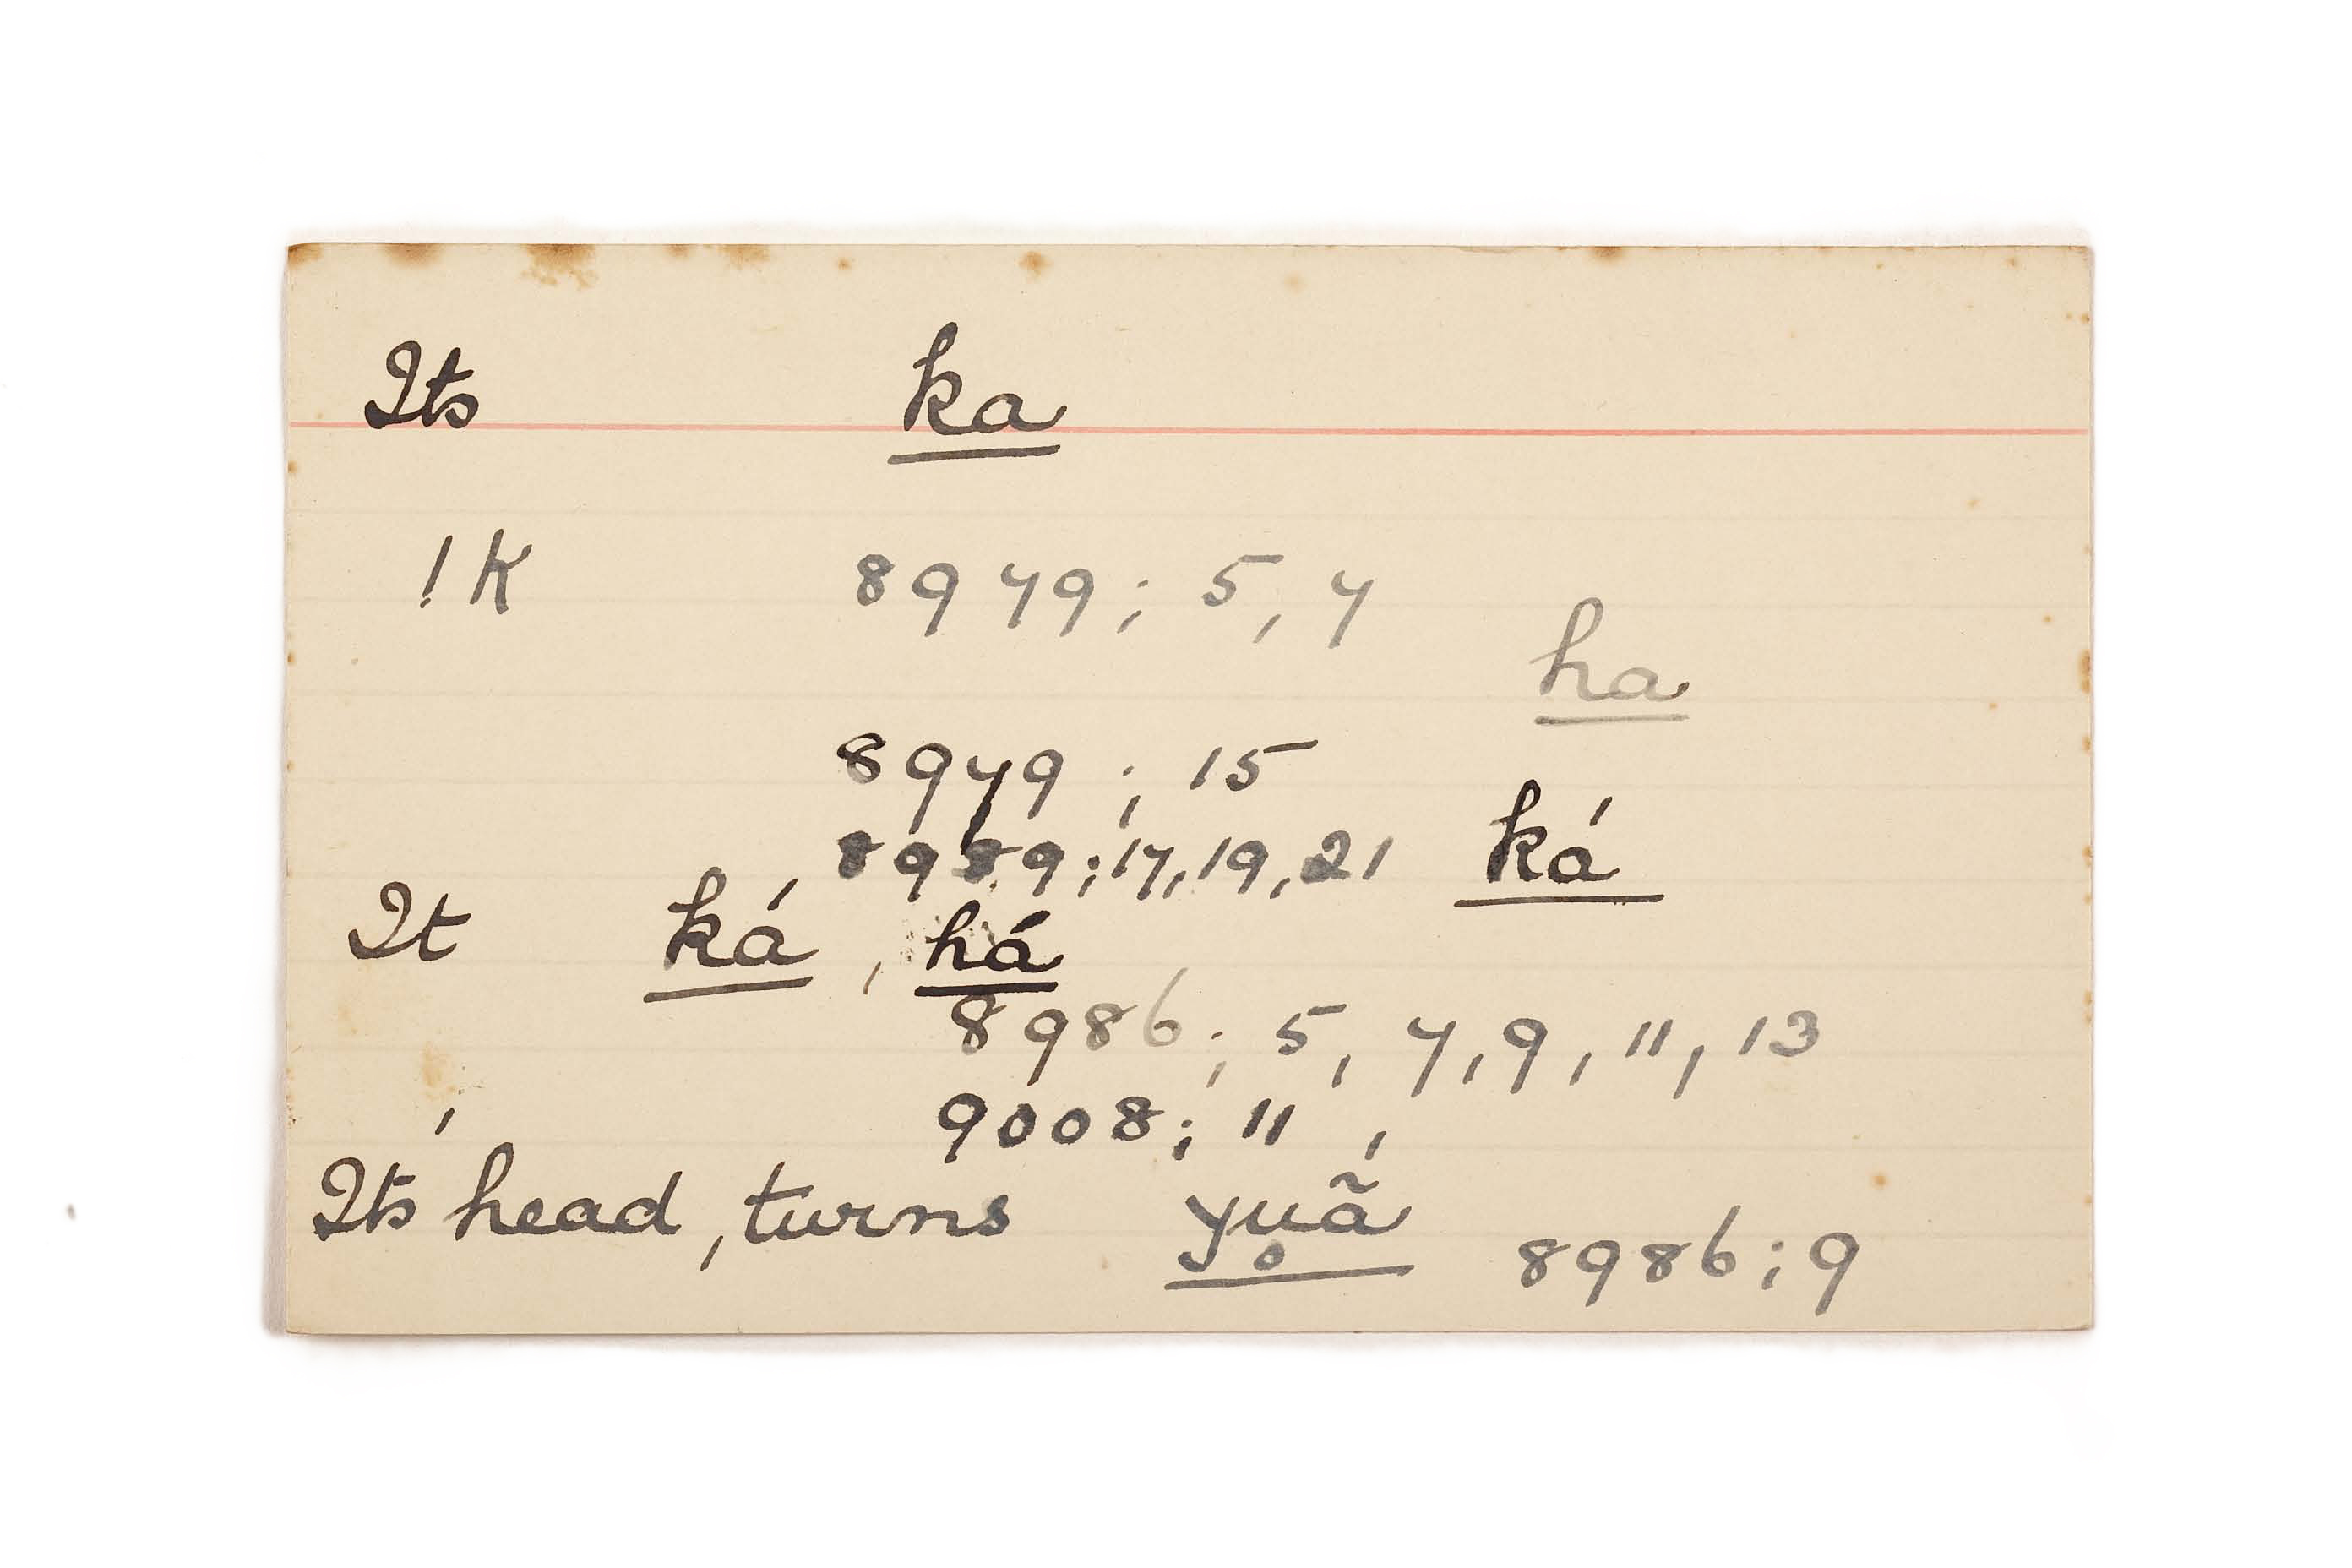 Its ka
!K 8979; 5, 7
ha
8979; 15
8989; 17, 19, 21 ká
It ká, há
8986; 5, 7, 9, 11, 13
9008; 11
Its head, turns yṵã́ 8986; 9